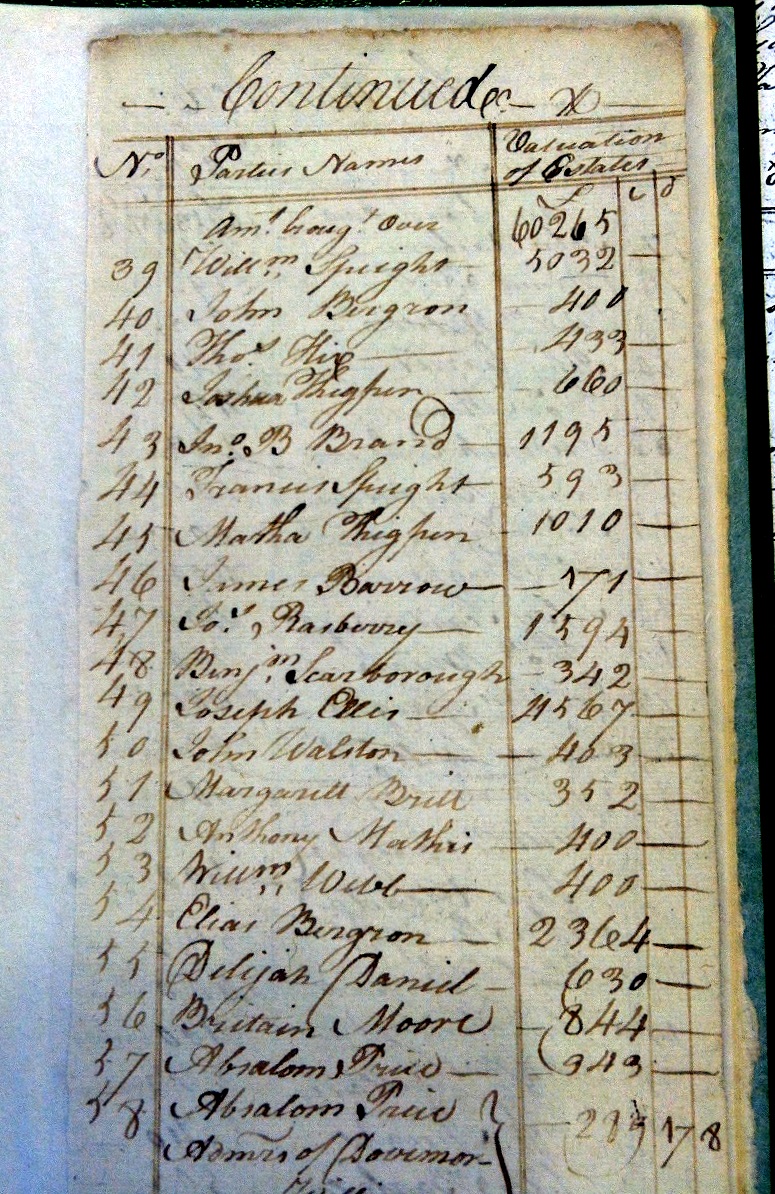 Continued
No. Parties Names Valuation of Estates
£ s d
Amt. broug.t Over 60265
39 Willm. Speight 5032 —
40 John Bergron 400
41 Thos. Hix 433 —
42 Joshua Thigpen 660 —
43 Jno. B Brand 1195 —
44 Francis Speight 593 —
45 Matha Thigpen 1010 —
46 James Barrow 171 —
47 Jos. Rasberry 1594 —
48 Benjm. Scarborough 342 —
49 Joseph Ellis 4567 —
50 John Walston 403 —
51 Margarett Britt 352 —
52 Anthony Mathis 400 —
53 Willm. Webb 400 —
54 Elias Bergron 2364 —
55 Delijah Daniel 630 —
56 Britain Moore 844 —
57 Absalom Price 343 —
58 Absalom Price
Admrs of 17 8